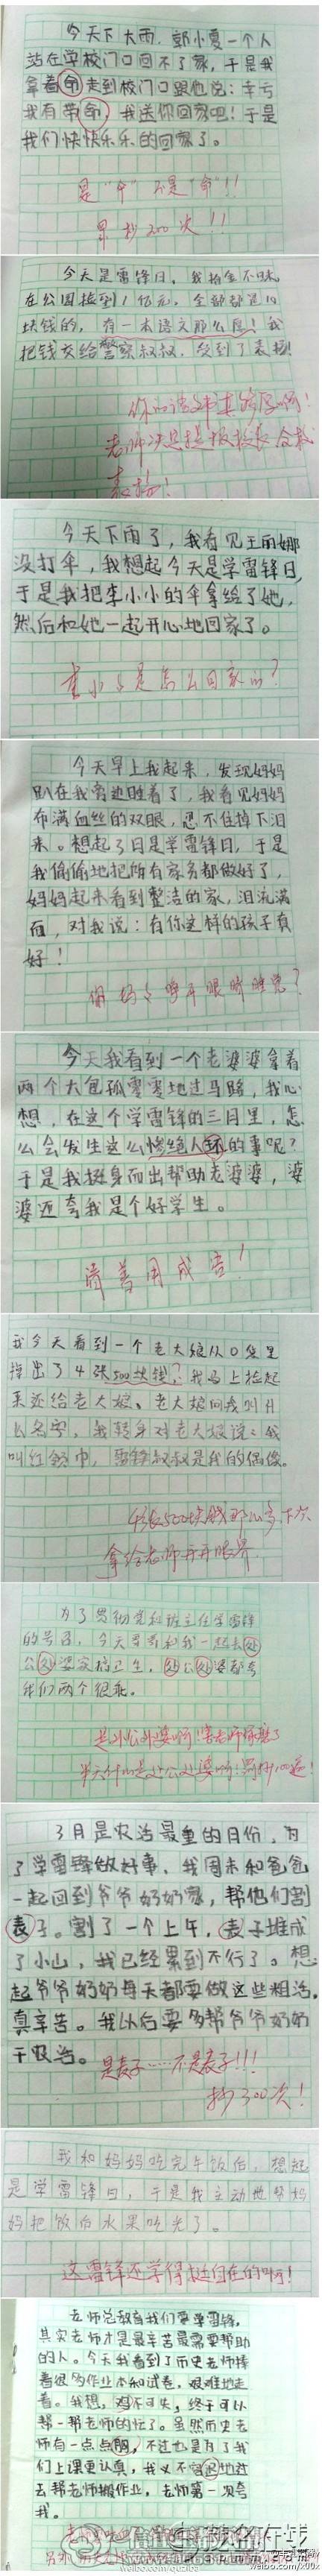 今天下大雨，郭小夏一个人
站在学校门口回不了家，于是我
拿着命走到校门口跟他说：幸亏
我有带命，我送你回家吧！于是
我们快快乐乐的回家了。
是"伞"不是"命"!!
罪抄200次!!
今天是雷锋日，我拾金不昧
在公园捡到1亿元，全部都是10
块钱的，有一本语文那么厚！我
把钱交给警察叔叔，受到了表扬！
你的语文书真够厚啊！
老师决定提报校长给我
表扬！
今天下雨了，我看见王丽娜
没打伞，我想起今天是学雷锋日，
于是我把李小小的伞拿给了她，
然后和她一起开心地回家了。
李小小是怎么回家的？
今天早上我起来，发现妈妈
趴在我旁边睡着了，我看见妈妈
布满血丝的双眼，忍不住掉下泪
来。想起3日是学雷锋日，于是
我偷偷地把所有家务都做好了，
妈妈起来看到整洁的家，泪流满
面，对我说：有你这样的孩子真
好！
你妈妈睁开眼睛睡觉？
今天我看到一个老婆婆拿着
两个大包孤零零地过马路，我心
想，在这个学雷锋的三月里，怎
么会发生这么惨绝人环的事呢？
于是我挺身而出帮助老婆婆，婆
婆还夸我是个好学生。
请善用成语！
我今天看到一个老大娘从口袋里
掉出了4张500块钱？我马上捡起
来还给老大娘。老大娘问我叫什
么名字，我转身对老大娘说：我
叫红领巾，雷锋叔叔是我的偶像。
4张500块钱那么多，下次
拿给老师开开眼界
为了贯彻党和班主任学雷锋
的号召，今天哥哥和我一起去处
公处婆家搞卫生，处公处婆都夸
我们两个很乖。
是外公外婆啊！害老师猜想了
半天什么是处公处婆啊！罚抄100遍！
3月是农活最重的日份，为
了学雷锋做好事，我周末和爸爸
一起回到爷爷奶奶家，帮他们割
表子。割了一个上午，表子堆成
了小山，我已经累到不行了。想
起爷爷奶奶每天都要做这些粗活，
真辛苦。我以后要多帮爷爷奶奶
干农活。
是麦子……不是表子!!!
抄300次！
我和妈妈吃完午饭后，想起
是学雷锋日，于是我主动地帮妈
妈把饭后水果吃光了。
这雷锋还学得挺自在的啊！
老师总教育我们要学雷锋，
其实老师才是最辛苦最需要帮助
的人。今天我看到了历史老师捧
着很多作业本和试卷，艰难地走
着。我想，机不可失，终于可以
帮一帮老师的忙了。虽然历史老
师有一点点胸，不过也是为了我
们上课更认真，我义不容迟地过
去帮老师搬作业，老师第一次夸
我。
weibo.com